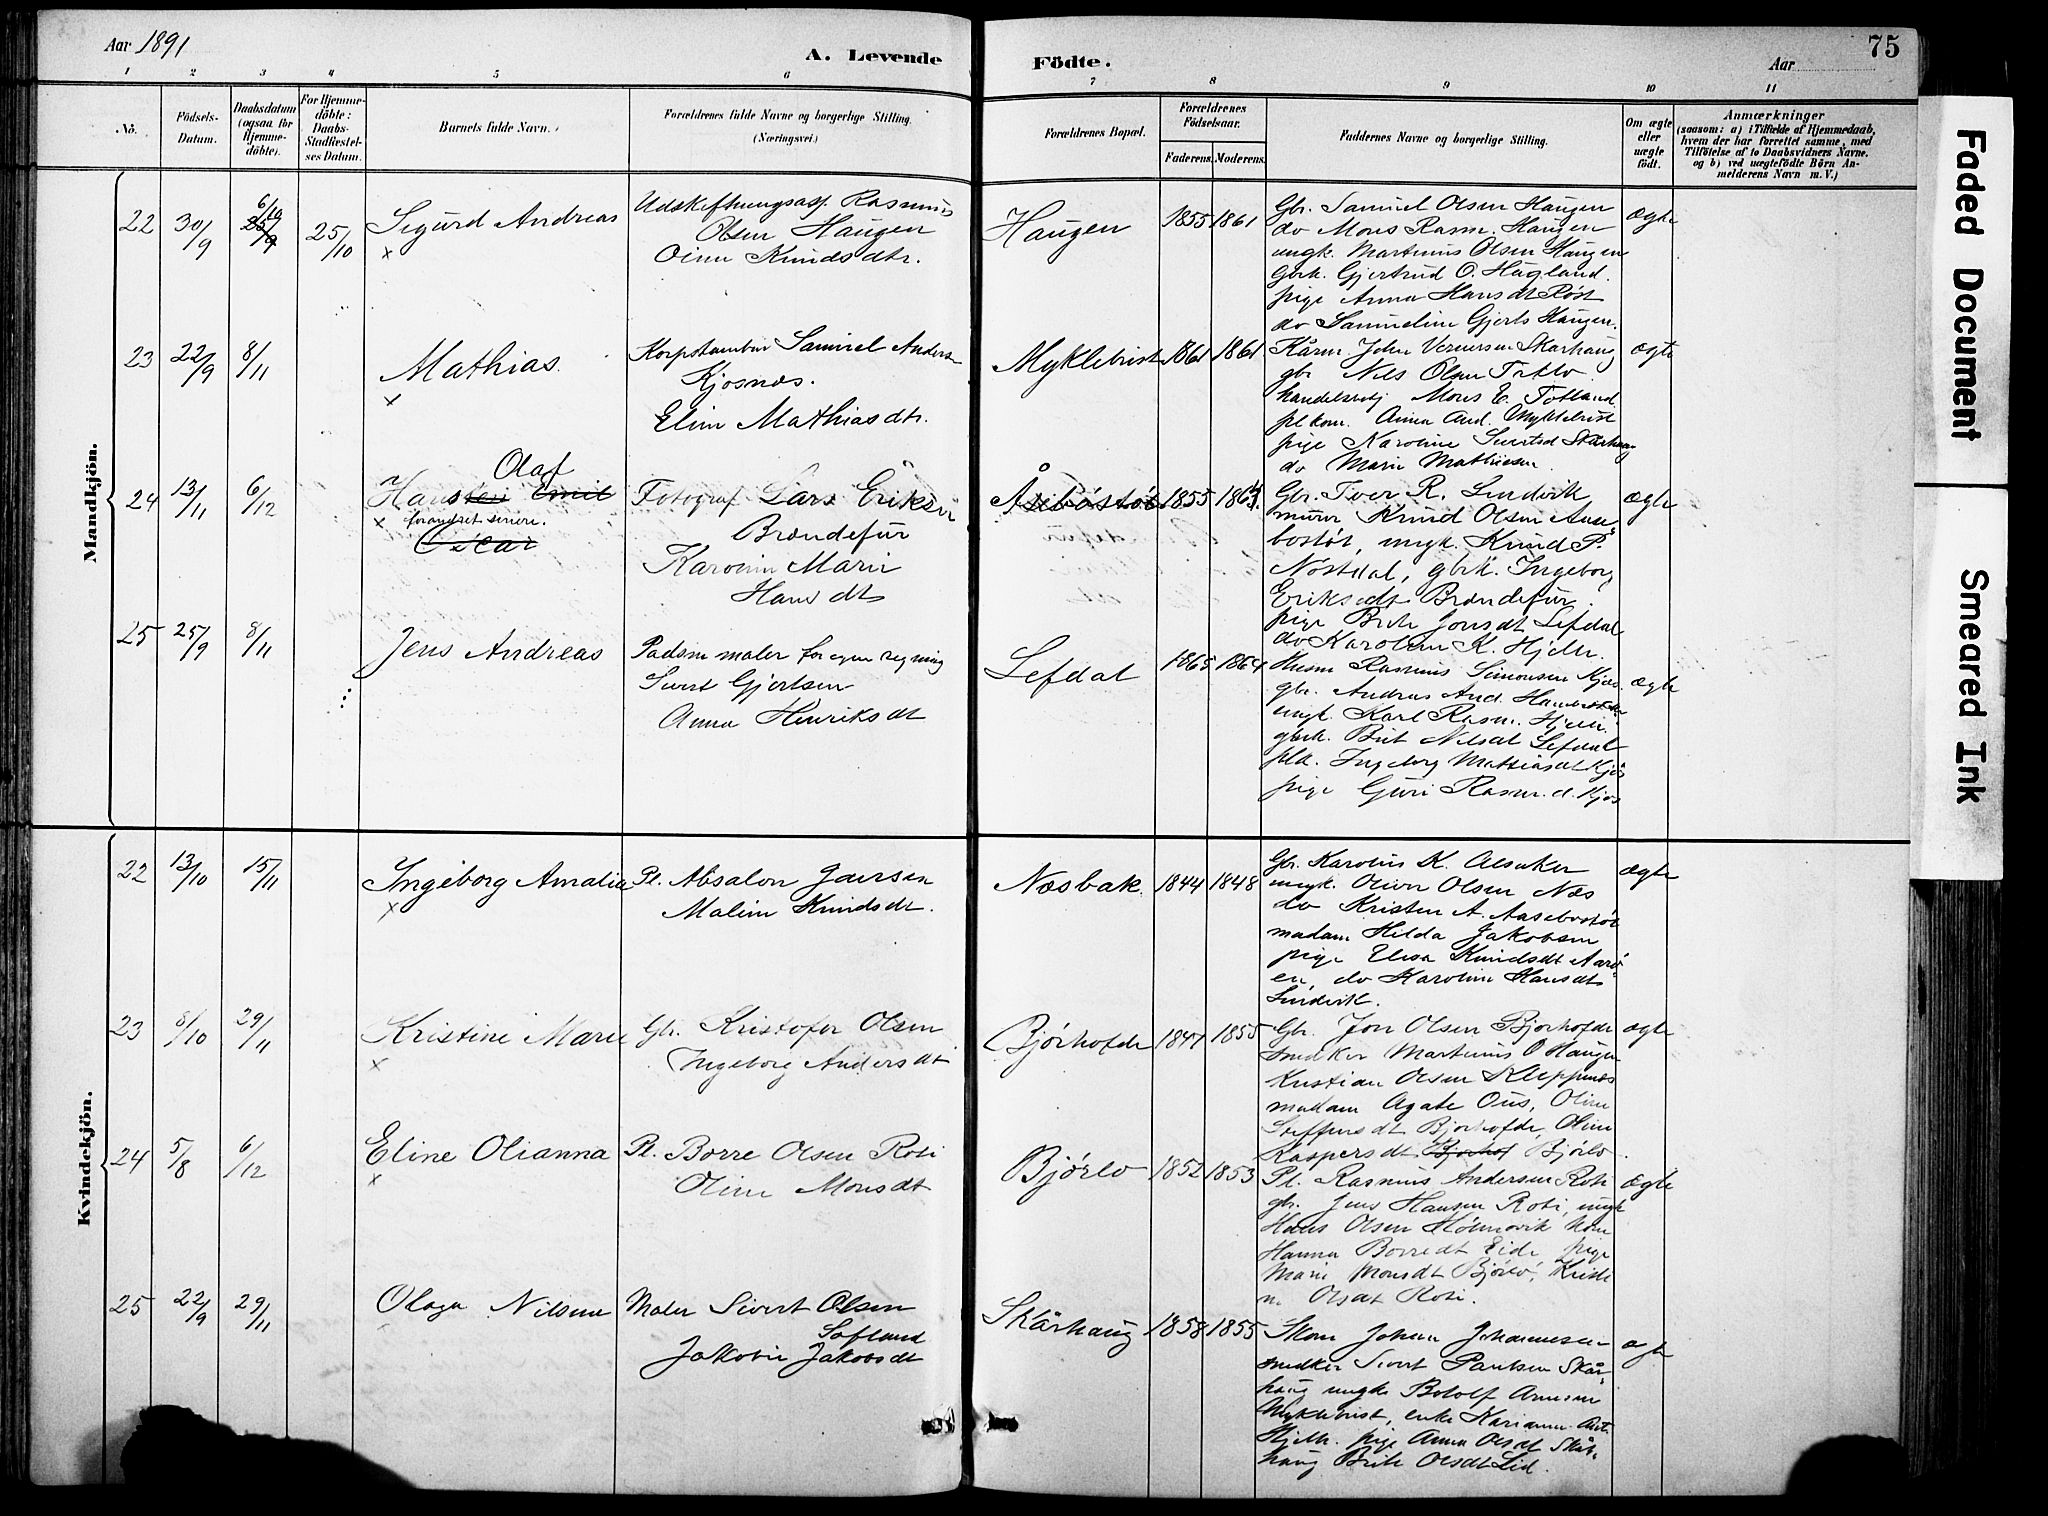 Aar 1891
A. Levende
Födte.
Aar
75
1 2 3 4 5 6 7 8 9 10 11
No.
Födsels-
Datum.
Daabsdatum
(ogsaa for
Hjemme-
döbte).
For Hjemme-
döbte:
Daabs-
Stadfæstel-
ses Datum.
Barnets fulde Navn.
Forældrenes fulde Navne og borgerlige Stilling.
(Næringsvei.)
Forældrenes Bopæl.
Forældrenes
Födselsaar.
Faderens. Moderens.
Faddernes Navne og borgerlige Stilling.
Om ægte
eller
uægte
födt.
Anmærkninger
(saasom: a) i Tilfælde af Hjemmedaab,
hvem der har forrettet samme, med
Tilföielse af to Daabsvidners Navne.
og b) ved uægtefödte Börn An-
melderens Navn m. V.)
Mandkjön.
22 30/9 6/10 25/9 25/10 Sigurd Andreas
Udskiftningsass. Rasmus
Olsen Haugen
Oline Knudsdtr.
Haugen 1855 1861
Gbr. Samuel Olsen Haugen
do Mons Rasm. Haugen
ungk. Martinus Olsen Haugen
Gbrk. Gjertrud O. Hugland.
pige Anna Hansdt Røst
do Samueline Gjerts Haugen.
ægte
23 22/9 8/11 Mathias.
Korpstambur Samuel Anders.
Kjosnæs.
Eline Mathiasdtr.
Myklebust 1861 1861
Kårm John Vernersen Skarhaug
gbr Nils Olsen
handelsbtj Mons E. Totland
plkom. Anna And. Myklebust
pige Karoline Sivertsd Skarhaug
do Marie Mathisen
ægte
24 13/11 6/12 Olaf
Hansten Emil
forandret senere.
Oscar
Fotograf Lars Eriksen
Brændefur
Karoline Marie
Hansdt
Åsebøstøl 1855 1864.
Gbr. Iver R. Lindvik
murer Knud Olsen Aase
bostøt, ungk. Knud P.
Nøstdal, gbrk. Ingeborg
Eriksdt Brændefur.
pige Brite Jonsdt Lefdal
do Karoline K. Hjelle.
ægte
25 25/9 8/11 Jens Andreas
Padsm maler for egen regning
Sivert Gjertsen
Anna Henriksdt
Lefdal 1865 1864
Husm Rasmus Simonsen Kjøs
gbr. Andreas And.
ungk. Karl Rasm. Hjelle.
gbrk. Brit Nilsdt Lefdal
plk. Ingeborg Mathiasdt Kjøs
pige Guri Rasm.d. Kjøs
ægte
Kvindekjön.
22 13/10 15/11 Ingeborg Amalia
Pl. Absalon Jansen
Maline Knudsdt.
Næsbak. 1844 1848
Gbr. Karolus K. Alsaker
ungk. Oliver Olsen Næs
do Kristen A. Aasebostøt
madam Hilda Jakobsen
pige Elisa Knudsdt Aarø
en, do Karoline Hansdt
Lindvik.
ægte
23 8/10 29/11 Kristine Marie
Gbr. Kristofer Olsen
Ingeborg Andersdt
Bjørhofde 1847 1855
Gbr. Jon Olsen Bjorhofde
snedker Martinus O Haugen
Kristian Olsen Kleppenes
madam Agate Ous, Oline
Steffensdt Bjorhofde, Oline
Kaspersdt Bjorhof Bjørlo.
ægte
24 5/8 6/12 Eline Olianna
Pl. Borre Olsen Roti
Oline Monsdt
Bjørlo 1852 1853
Pl. Rasmus Andersen Roti
gbr. Jens Hansen Roti, ungk
Hans Olsen Holmøvik kone
Hanna Borredt Eide, pige
Marie Monsdt Bjørlo, Kristi
ne Olsdt Roti.
ægte
25 22/9 29/11 Olaga Nilsine
Maler Sivert Olsen
Sofland
Jakobie Jakobsdt
Skårhaug 1858 1855
Skom Johan Johannesen
snedker Sivert Paulsen Skår-
haug ungk Botolf Arnesen
Myklebust, enke Karianne Ant.
Hjelle. pige Anna Olsdt Skår-
haug Brite Olsdt Lid.
ægte
Faded Document
Smeared Ink